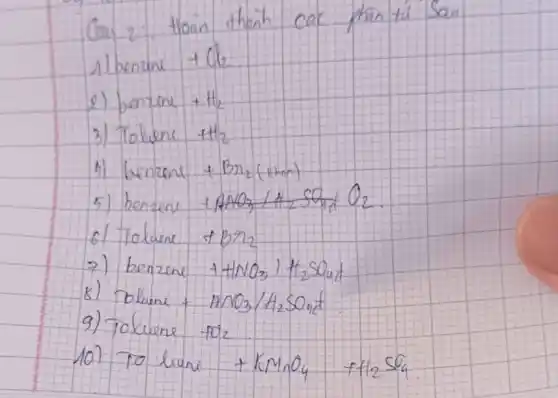 Câu 2: Hoàn thành các phân tử Sau
1) benzene + Cl2
2) benzene + H2
3) Toluene + H2
4) benzene + Br2 (than)
5) benzene + O2.
6) Toluene + Br2
7) benzene + HNO3 / H2SO4đ
8) Toluene + HNO3/H2SO4đ
9) Toluene + O2
10) Toluene + KMnO4 + H2SO4.